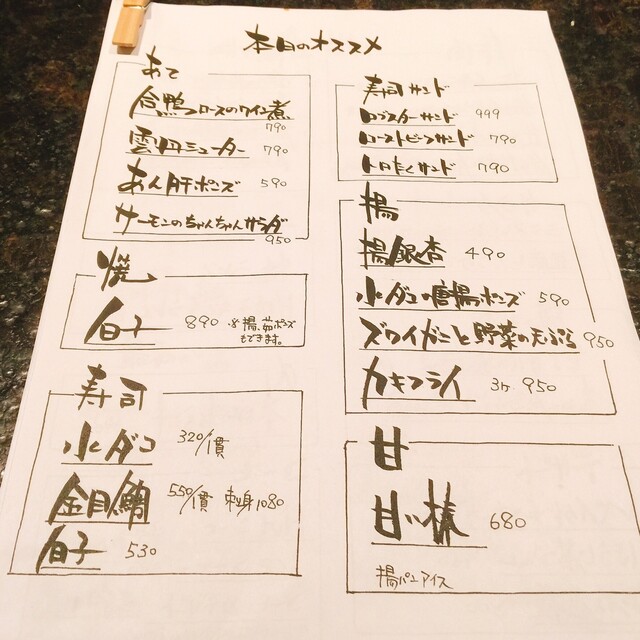 本日のオススメ
あて
合鴨ロースのワイン煮
790
雲丹ミューター 790
あん肝ポンズ 590
サーモンのちゃんちゃんサラダ
950
焼
白子 890 ※揚、茹ポンズ
もできます。
寿司
水ダコ 320/貫
金目鯛 550/貫 刺身1080
白子 530
寿司サンド
ロブスターサンド 999
ローストビーフサンド 790
トロたくサンド 790
揚
揚銀杏 490
水ダコの唐揚ポンズ 590
ズワイガニと野菜の天ぷら 950
カキフライ 3ケ 950
甘
甘い棒 680
揚パンアイス